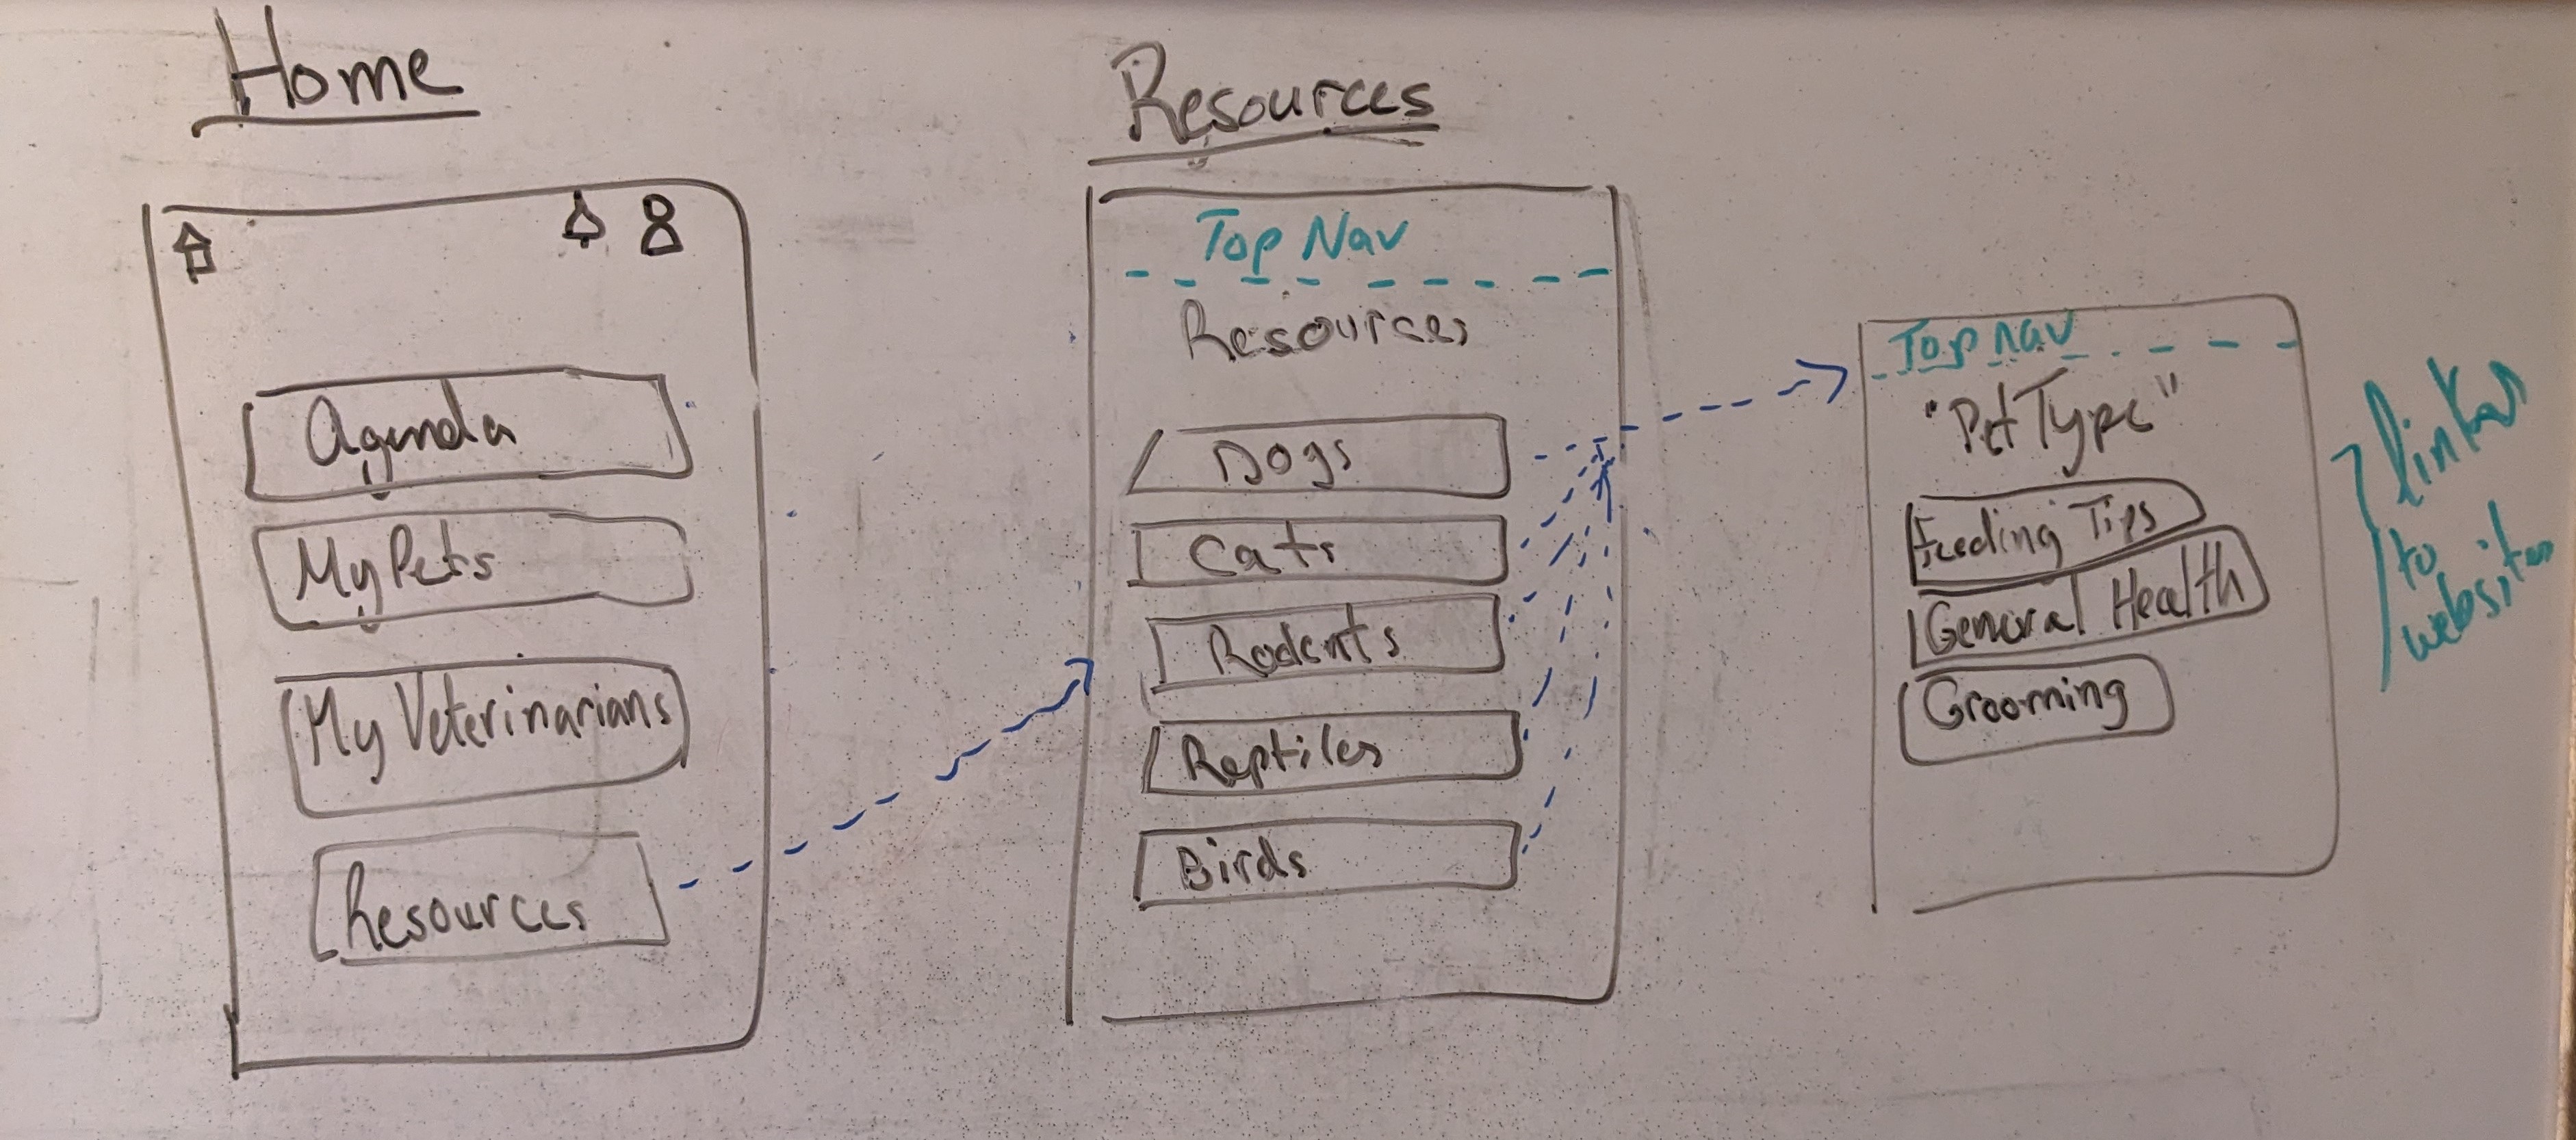 Home
Agenda
My Pets
My Veterinarians
Resources
Resources
Top Nav
Resources
Dogs
Cats
Rodents
Reptiles
Birds
Top Nav
"Pet Type"
Feeding Tips
General Health
Grooming
links
to
websites